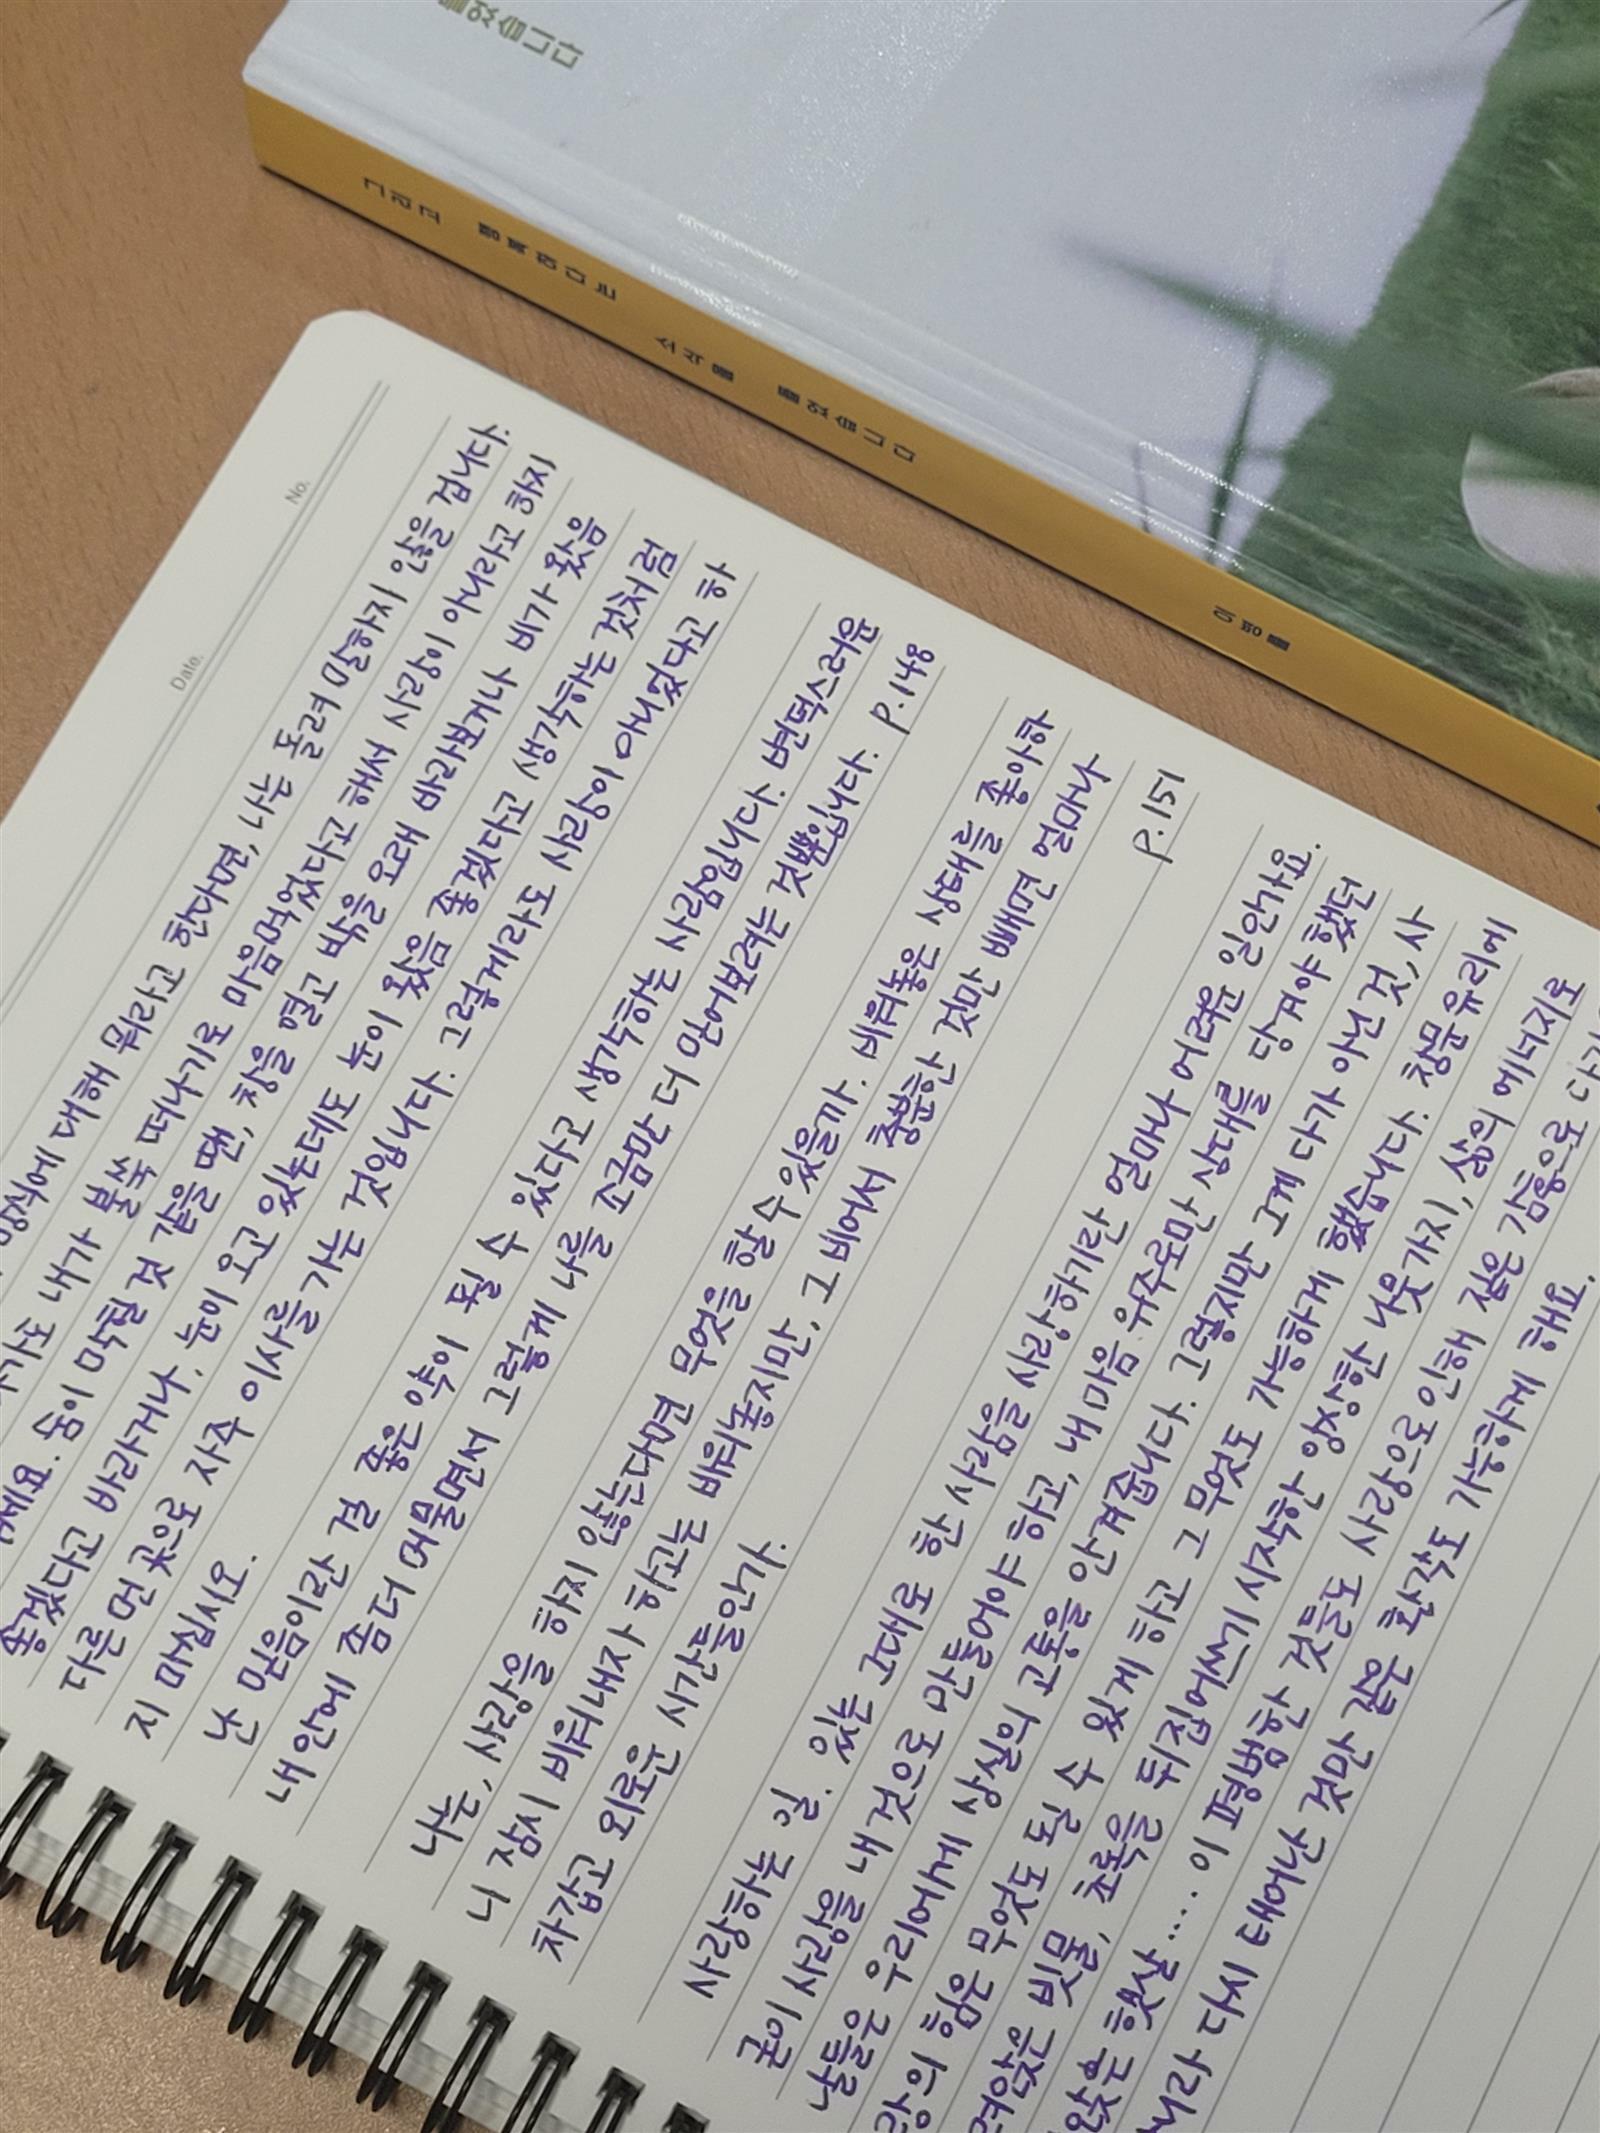 들었습니다
그리고 행복하다는 소식을 들었습니다 이병률
No.
Date.
대해 뭐라고 한다면, 나는 돌려 말하지 않을 겁니다.
내가 불쑥 떠나기로 마음먹었다고 해서 사랑이 아니라고 하지
숨이 막힐 것 같을 땐, 창을 열고 밖을 향해 바라보거나 비가 왔음
좋겠다고 바라거나, 눈이 오고 있는데도 눈이 왔음 좋겠다고 생각하는 것처럼
다른 먼 곳으로 자주 이사를 가는 것입니다. 그렇게라도 사랑이 아니었다고 하
지 마십시오.
난 믿음이란 걸 좋은 약이 될 수 있다고 생각하는 사람입니다. 변덕스러운
내 안에 좀 더 머물면서 그렇게 나를 조금만 더 믿어보려는 것뿐입니다. P.148
나는, 사랑을 하지 않는다면 무엇을 할 수 있을까. 비워놓은 상태를 좋아한
니 잠시 비워내자 하고는 비워놓지만, 그 비어서 충분한 것만 빼면 얼마나
차갑고 외로운 시간들인가. P.151
사랑하는 길, 있는 그대로 한 사람을 사랑하기란 얼마나 어려운 일인가요.
사랑을 내 것으로 만들어야 하고, 내 마음 위주로만 상대를 당겨야 했던
날들은 우리에게 상실의 고통을 안겨줍니다. 그렇지만 그게 다가 아닌 것, 사
힘은 무엇도 될 수 있게 하고 그 무엇도 가능하게 했습니다. 창문 유리에
빗물, 초록을 뒤집어쓰기 시작한 앙상한 나뭇가지, 삶의 에너지로
햇살.... 이 평범한 것들도 사랑으로 인해 짙은 감동으로
다시 태어난 것만 같은 착각도 가능하게 해요.